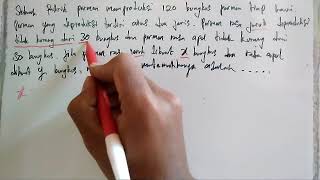 Sebuah Pabrik permen memproduksi 120 bungkus permen tiap hari.
permen yang diproduksi terdiri atas dua jenis. Permen rasa jeruk diproduksi
tidak kurang dari 30 bungkus dan permen rasa apel tidak kurang dari
50 bungkus. Jika permen rasa jeruk dibuat x bungkus dan rasa apel
dibuat y bungkus, matematikanya adalah
x